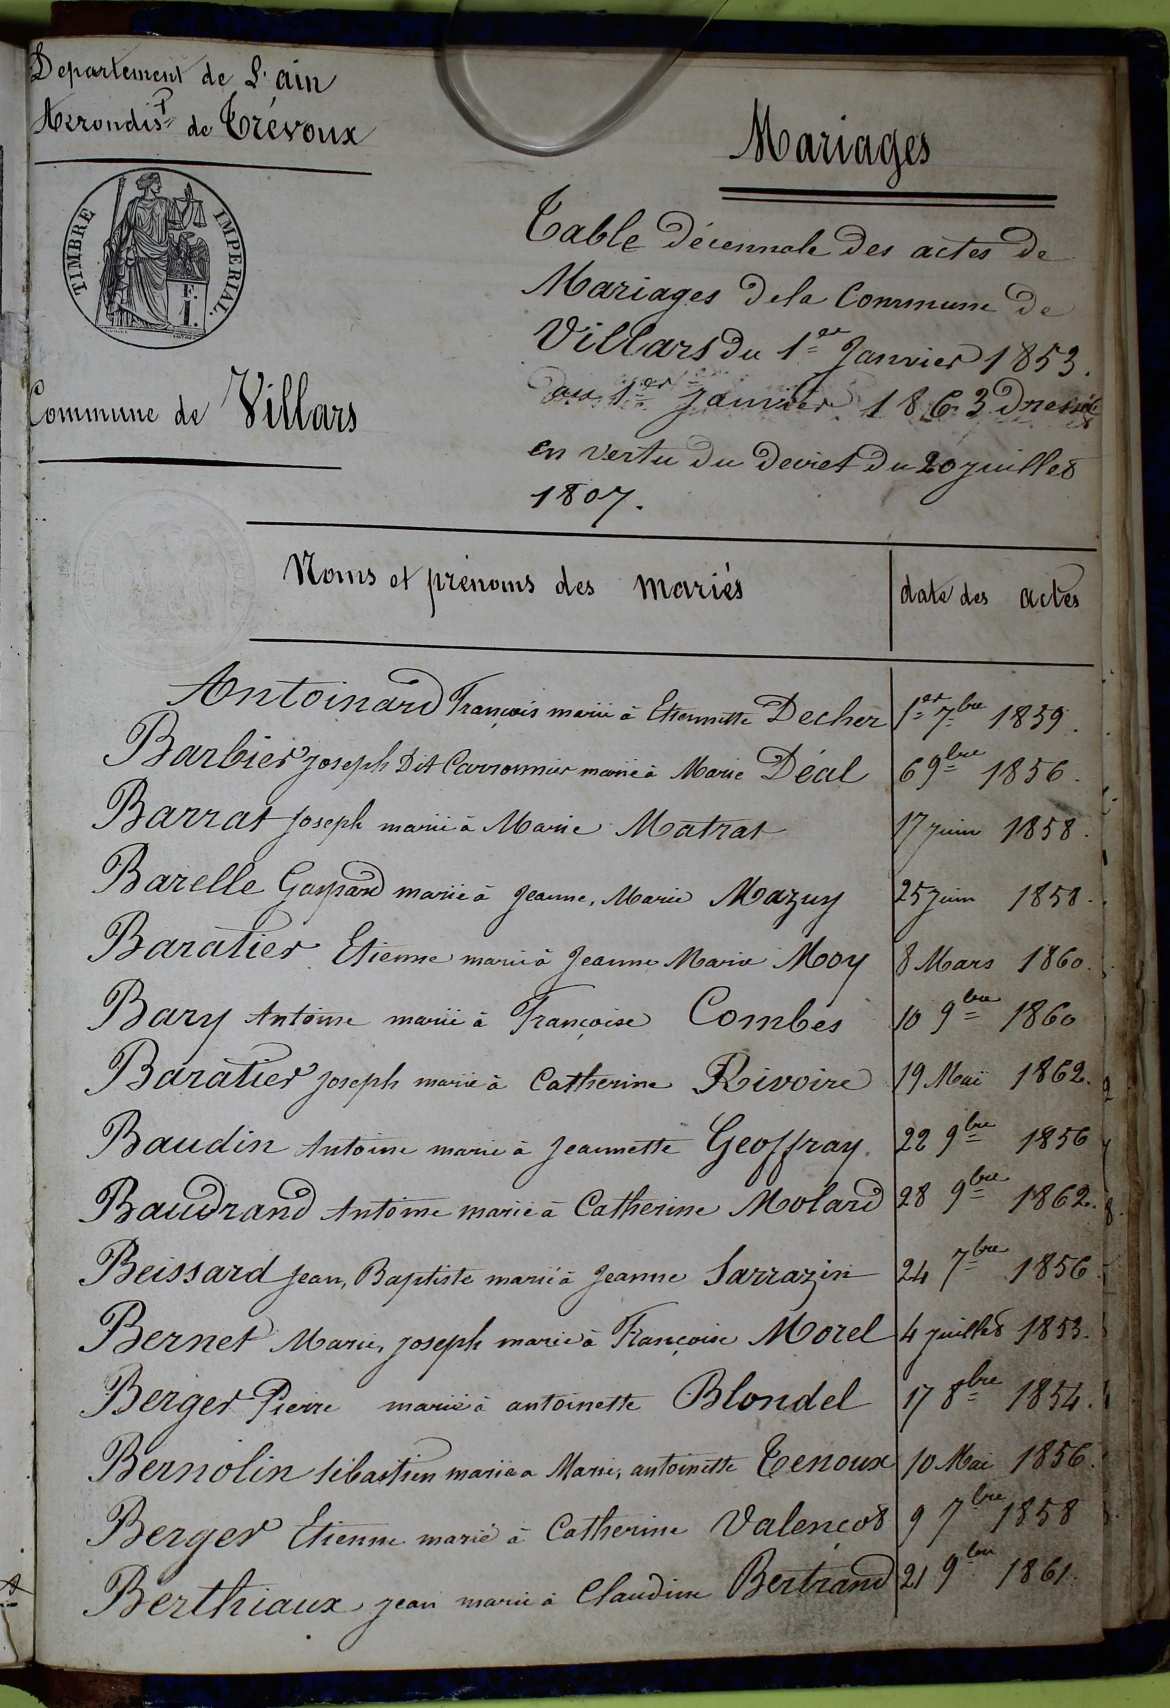 Departement de L'ain
Arrondist de Trévoux
TIMBRE IMPERIAL.
F.
I.
Commune de Villars
Mariages
Table décennale des actes de
Mariages de la Commune de
Villars du 1er Janvier 1853.
au 1er Janvier 1863 Dressé
en vertu du decret du 20 juillet
1807.
Noms et prénoms des mariés date des actes
Antoinard François marié à Etiennette Decher 1er 7bre 1859.
Barbier joseph Dit Carronnier marié à Marie Déal 6 9bre 1856.
Barrat joseph marié à Marie Matrat 17 juin 1858.
Barelle Gaspard marié à jeanne, Marie Mazuy 25 juin 1858.
Baratier Etienne marié à Jeanne Marie Moy 8 Mars 1860.
Bary Antoine marié à Françoise Combes 10 9bre 1860
Baratier joseph marié à Catherine Rivoire 19 Mai 1862.
Baudin Antoine marié à jeannette Geoffray. 22 9bre 1856
Baudrand Antoine marié à Catherine Molard 28 9bre 1862.
Beissard jean, Baptiste marié à jeanne Sarrazin 24 7bre 1856.
Bernet Marie, joseph marié à Françoise Morel 4 juillet 1853.
Berger Pierre marié à antoinette Blondel 17 8bre 1854.
Bernolin sébastien marié à Marie, antoinette Tenoux 10 Mai 1856.
Berger Etienne marié à Catherine Valençot 9 7bre 1858
Berthiaux jean marié à Claudine Bertrand 21 9bre 1861.